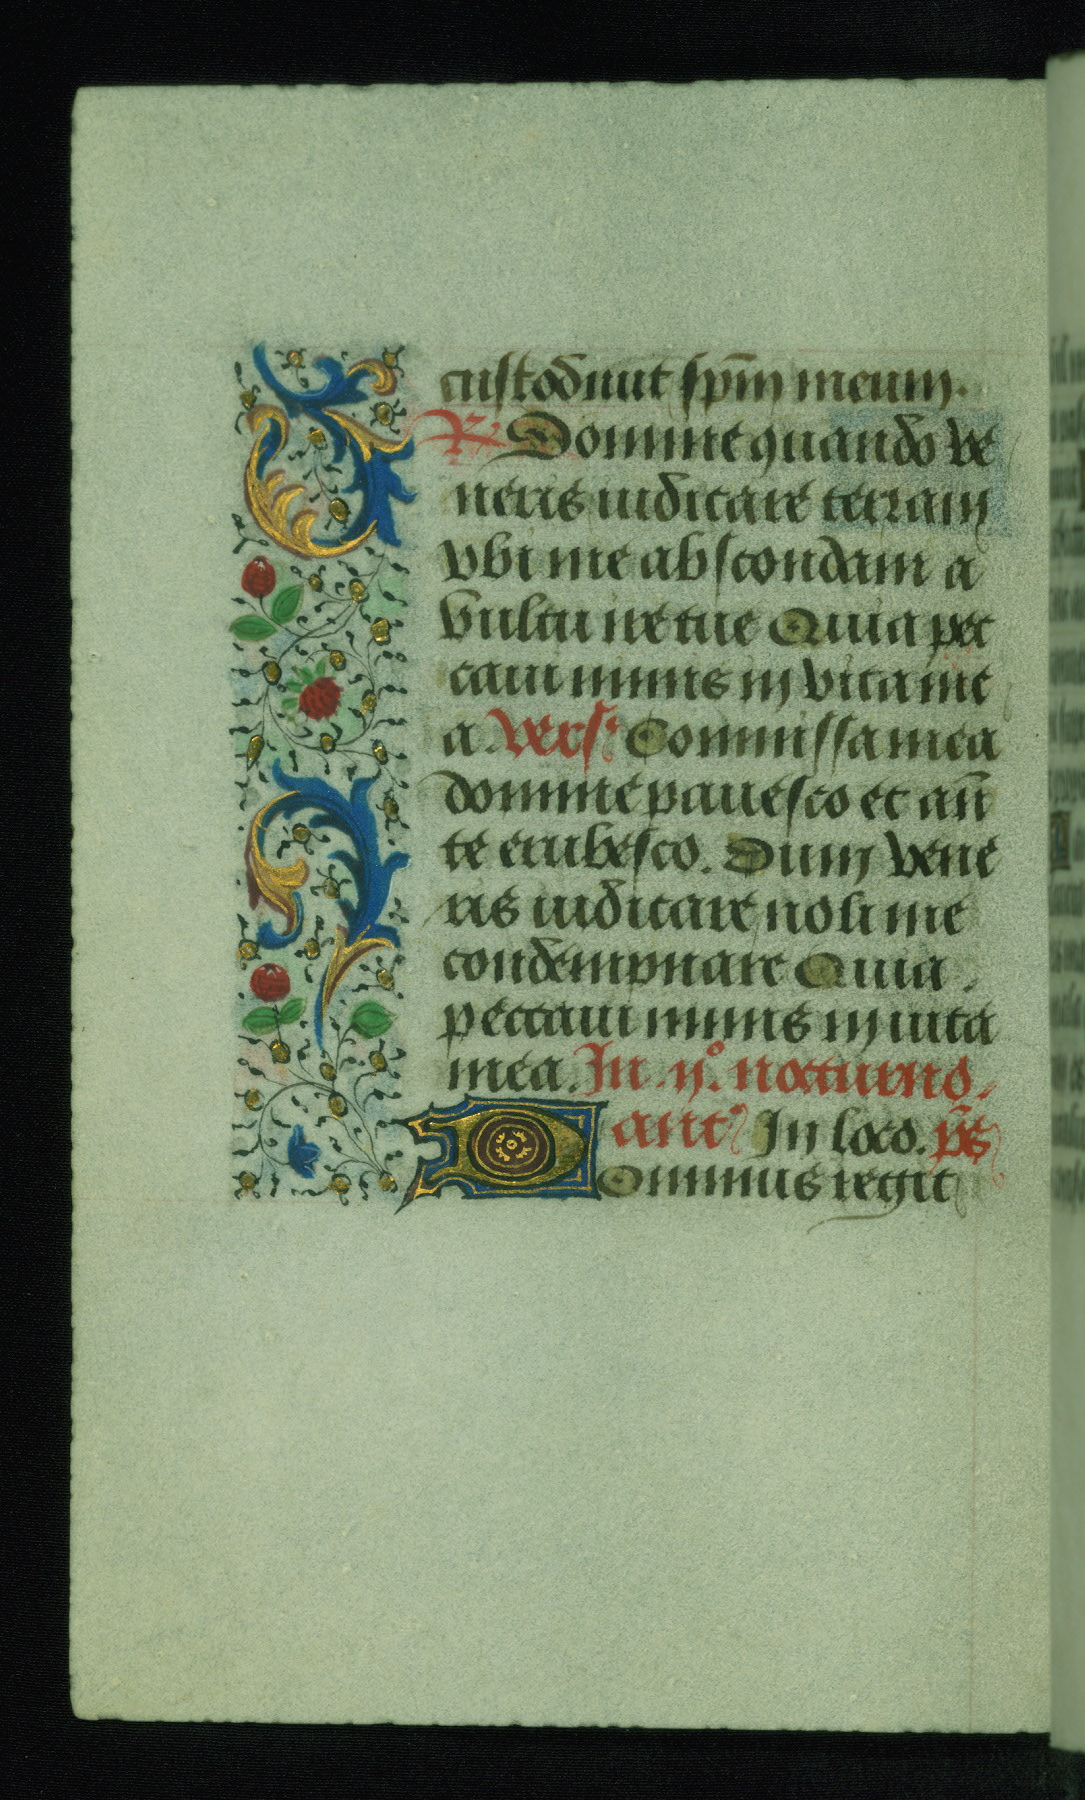 custodiuit sp̄m meum.
R. Domine quando ve
neris iudicare terram
vbi me abscondam a
vultu ire tue Quia pec
caui nimis in vita me
a. vers. Commissa mea
domine pauesco et an̄
te erubesco. Dum vene
ris iudicare noli me
condempnare Quia.
peccaui nimis in uita
mea. In .ij°. nocturno.
ant° In loco. p̄s
Dominus regit